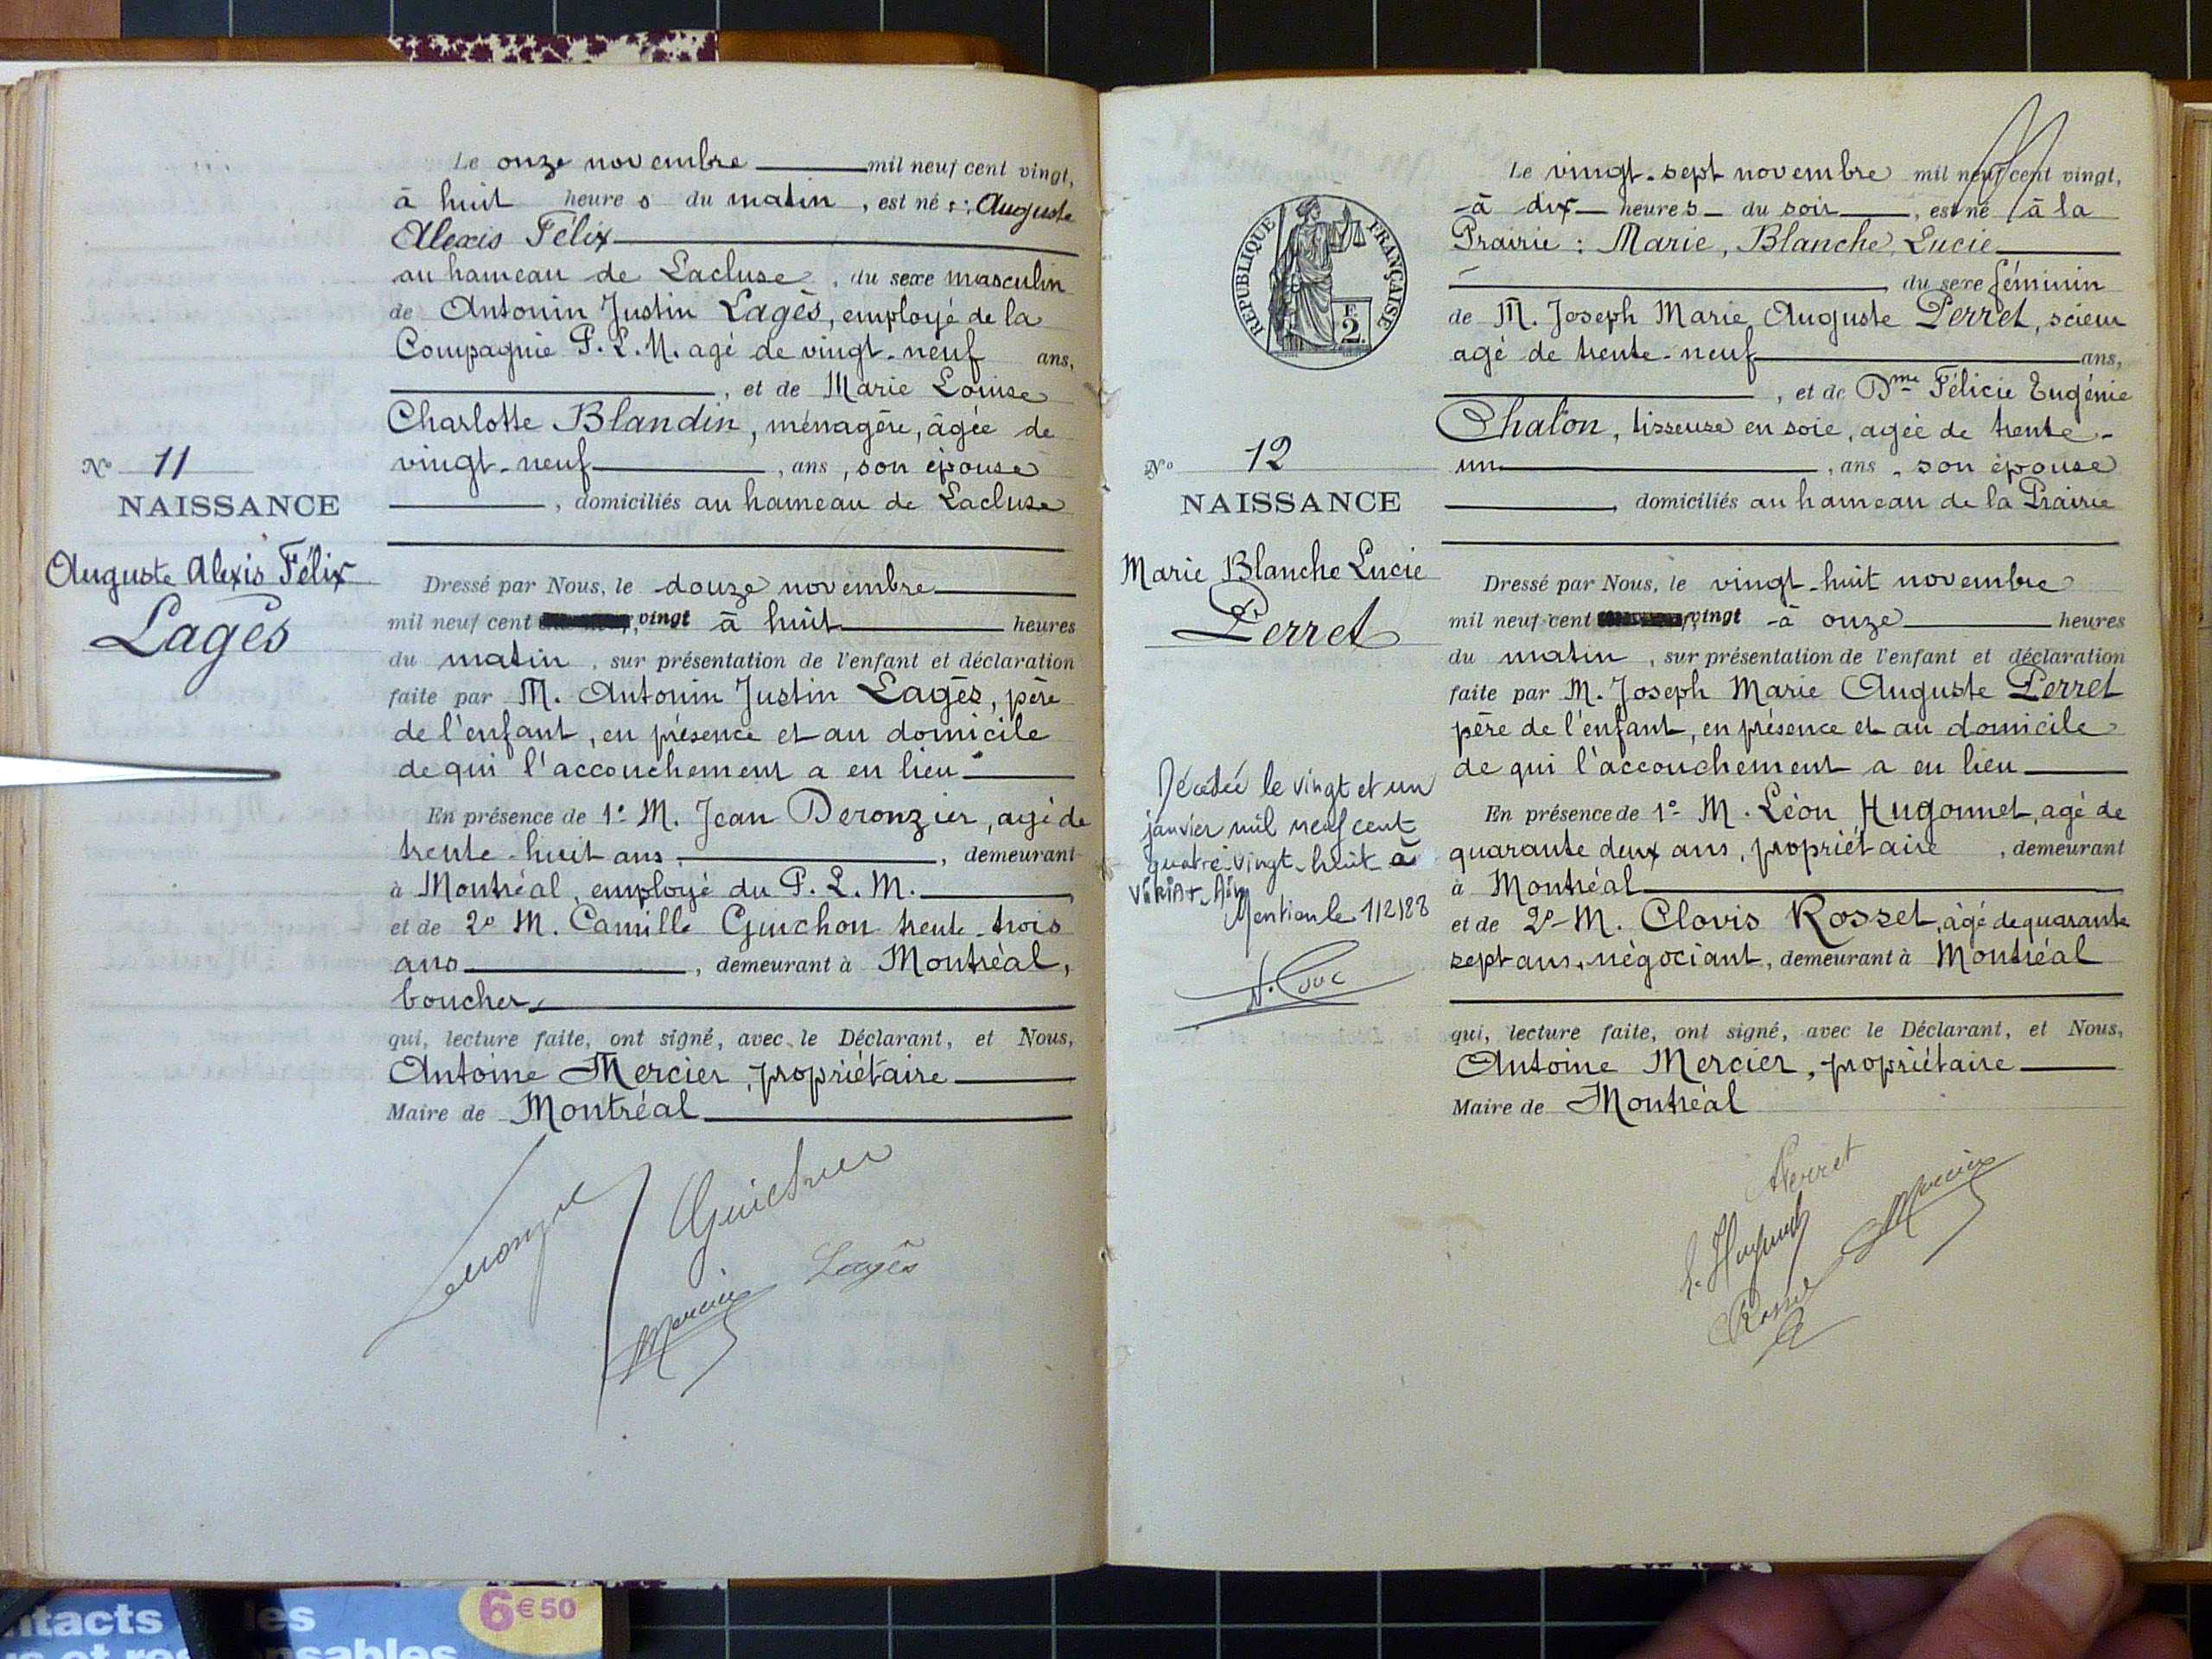 Le onze novembre mil neuf cent vingt,
à huit heures du matin, est né : Auguste
Alexis Félix
au hameau de Lacluse, du sexe masculin
de Antonin Justin Lagès, employé de la
Compagnie P.L.M. agé de vingt-neuf ans,
, et de Marie Louise
Charlotte Blandin, ménagère, âgée de
vingt-neuf, ans, son épouse
, domiciliés au hameau de Lacluse
No 11
NAISSANCE
Auguste Alexis Félix
Lagès
Dressé par Nous, le douze novembre
mil neuf cent vingt à huit heures
du matin, sur présentation de l'enfant et déclaration
faite par M. Antonin Justin Lagès, père
de l'enfant, en présence et au domicile
de qui l'accouchement a eu lieu
En présence de 1° M. Jean Deronzier, agé de
trente-huit ans, demeurant
à Montréal, employé du P.L.M.
et de 2° M. Camille Guichon trente-trois
ans, demeurant à Montréal,
boucher,
qui, lecture faite, ont signé, avec le Déclarant, et Nous,
Antoine Mercier, propriétaire
Maire de Montréal
Guichon
Lagès
Mercier
RÉPUBLIQUE FRANÇAISE
F.
2.
Le vingt-sept novembre mil neuf cent vingt,
à dix heures du soir, est né à la
Prairie : Marie, Blanche, Lucie
, du sexe féminin
de M. Joseph Marie Auguste Perret, scieur
agé de trente-neuf ans,
, et de Dme Félicie Eugénie
Chalon, tisseuse en soie, agée de trente-
un, ans, son épouse
, domiciliés au hameau de la Prairie
No 12
NAISSANCE
Marie Blanche Lucie
Perret
Décédée le vingt et un
janvier mil neuf cent
quatre-vingt-huit à
Viriat-Ain
Mention le 1/2/88
Dressé par Nous, le vingt-huit novembre
mil neuf cent vingt à onze heures
du matin, sur présentation de l'enfant et déclaration
faite par M. Joseph Marie Auguste Perret
père de l'enfant, en présence et au domicile
de qui l'accouchement a eu lieu
En présence de 1° M. Léon Hugonnet, agé de
quarante deux ans, propriétaire, demeurant
à Montréal
et de 2° M. Clovis Rosset, âgé de quarante
sept ans, négociant, demeurant à Montréal
qui, lecture faite, ont signé, avec le Déclarant, et Nous,
Antoine Mercier, propriétaire
Maire de Montréal
Perret
Mercier
L. Hugonnet
Rosset
ntacts
les
nsables
6€50